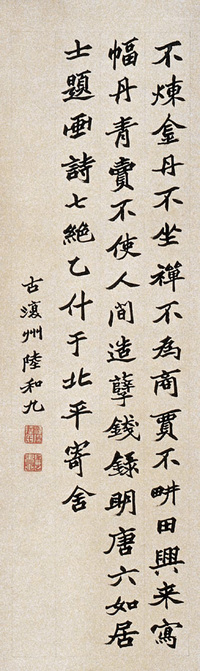 不煉金丹不坐禪不為商賈不畊田興来寫
幅丹青賣不使人間造孽錢錄明唐六如居
士題画詩七絕乙什于北平寄舍
古瀛州陸和九